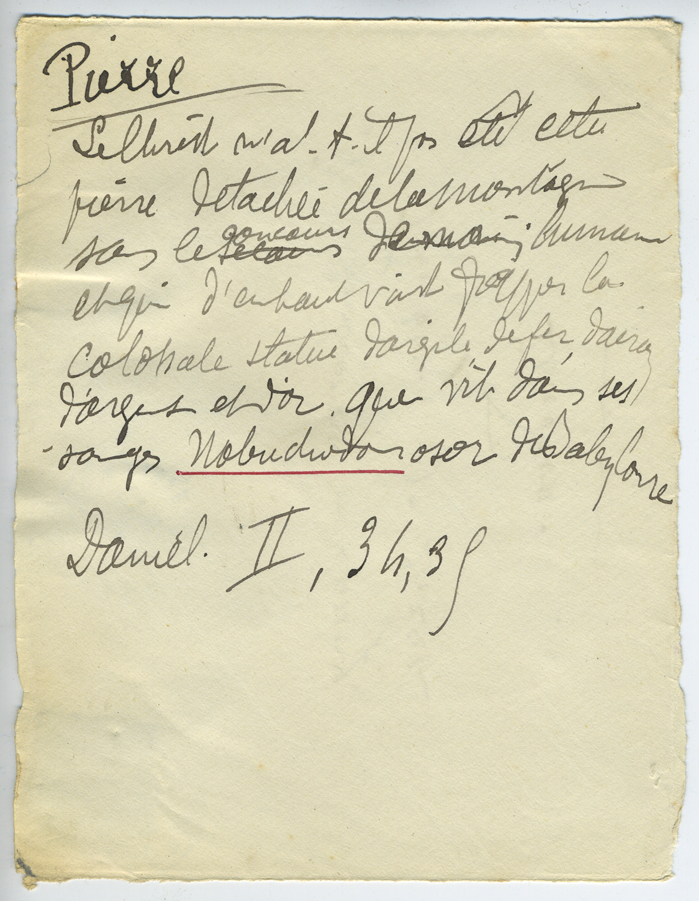 Pierre
Le Christ n'a-t-il pas été cette
pierre détachée de la montagne
sans le secours concours de mains humaine
et qui d'en haut vint frapper la
colossale statue d'argile de fer d'airain
d'argent et d'or, que vit dans ses
songes Nabuchodonosor de Babylone
Daniel. II, 34, 35